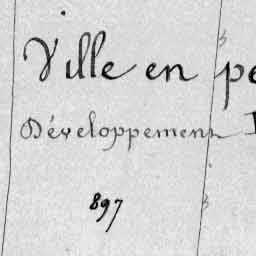 Ville en pe
Développement
897